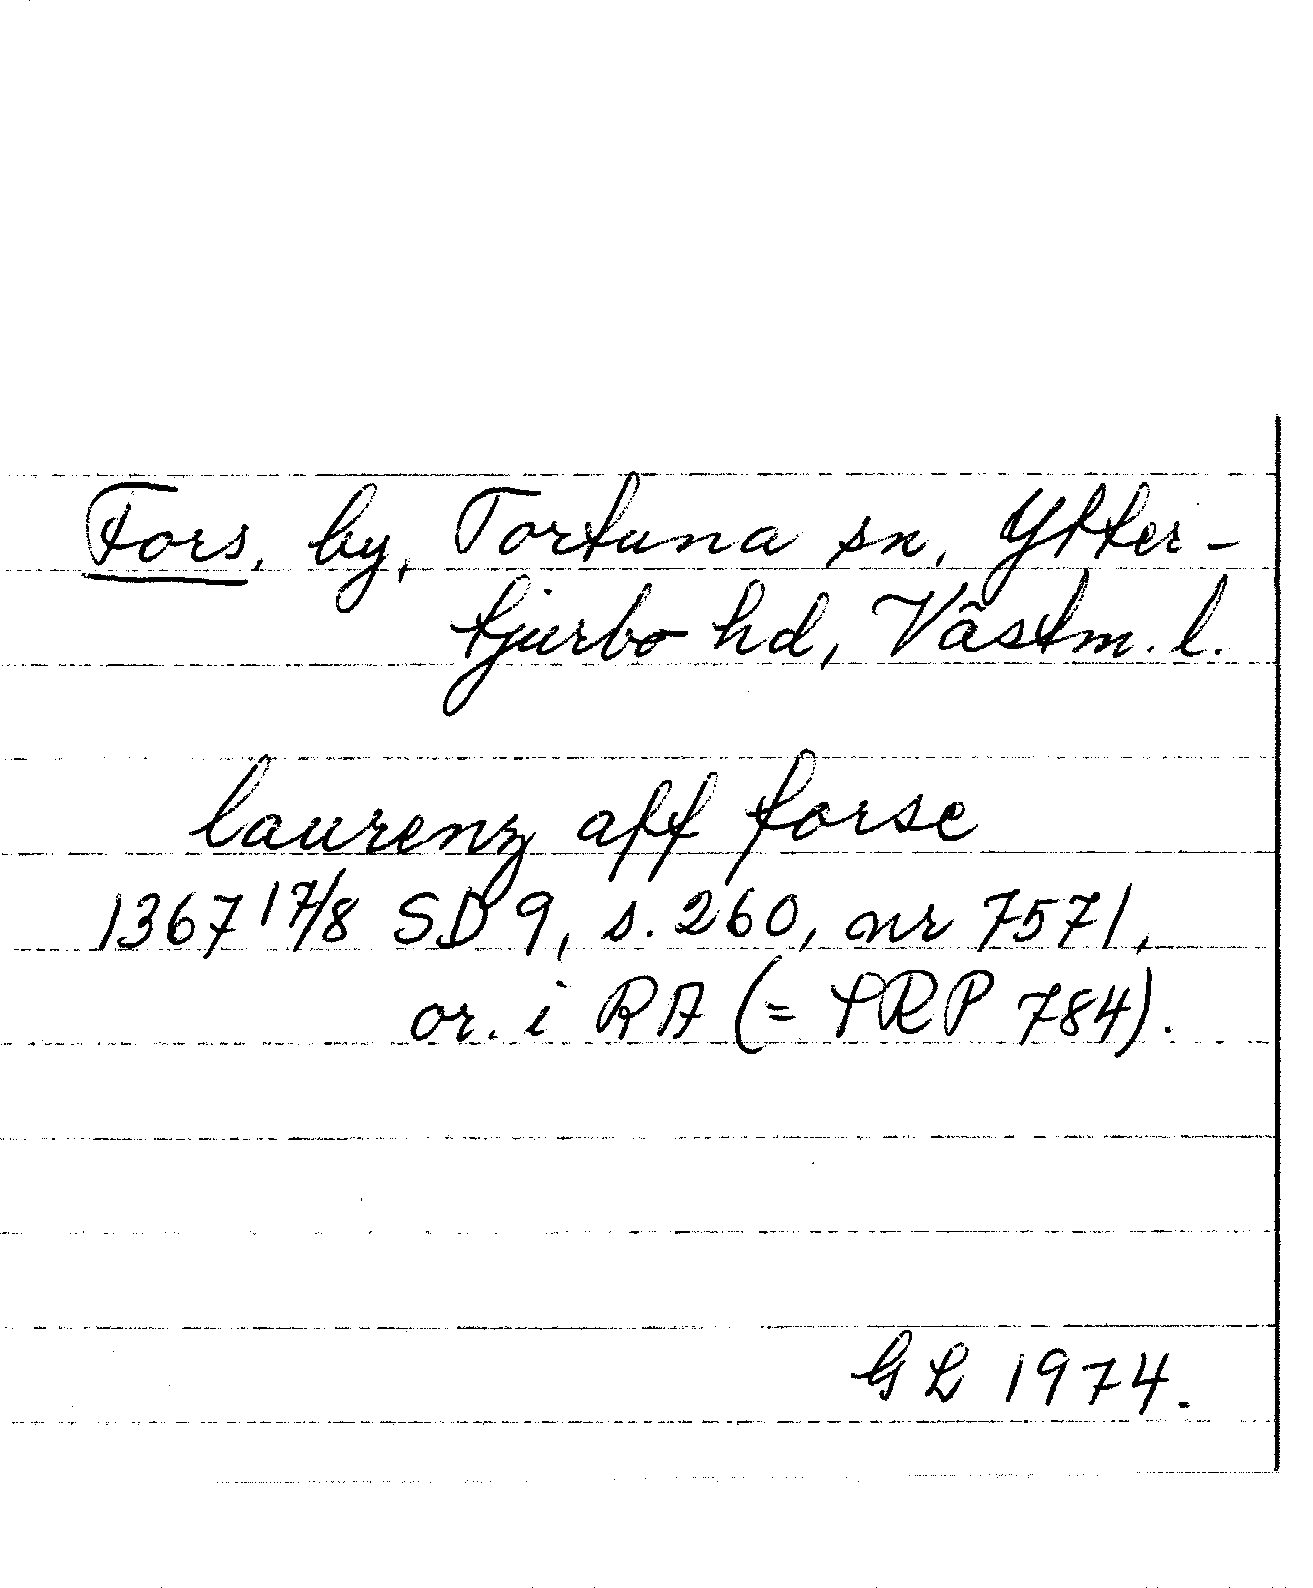 Fors, by, Tortuna sn, Ytter-
tjurbo hd, Västm. l.
laurenz aff forse
1367 17/8 SD 9, s. 260, nr 7571,
or. i RA (= SRP 784).
GL 1974.